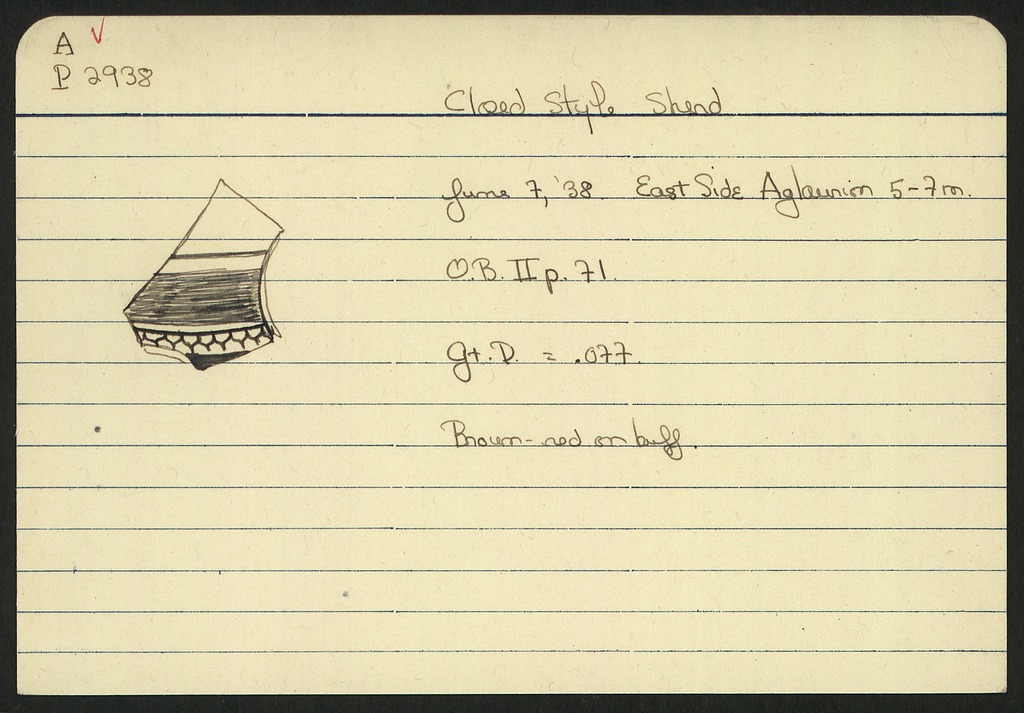 A ✓
P 2938
Closed Style Sherd
June 7, '38. East Side Aglaurion 5-7m.
O.B. II p. 71.
Gt. D. = .077.
Brown-red on buff.